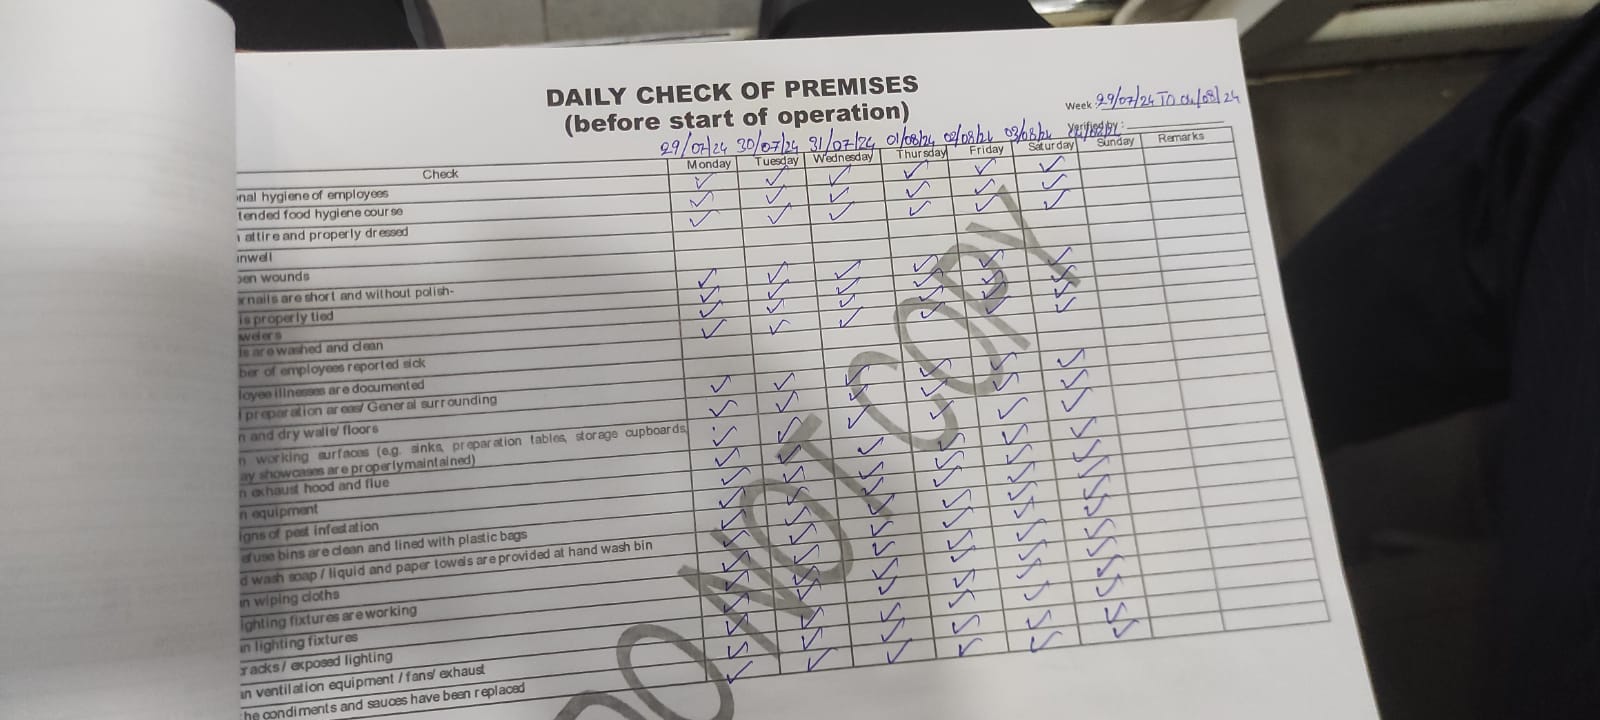 DAILY CHECK OF PREMISES
(before start of operation)
Week : 29/07/24 TO 04/08/24
Verified by :
29/07/24 30/07/24 31/07/24 01/08/24 02/08/24 03/08/24
Check Monday Tuesday Wednesday Thursday Friday Saturday Sunday Remarks
nal hygiene of employees
tended food hygiene course
attire and properly dressed
unwell
en wounds
rnails are short and without polish-
is properly tied
welers
ls are washed and clean
ber of employees reported sick
loyee illnesses are documented
preparation areas/ General surrounding
n and dry walls/ floors
n working surfaces (e.g. sinks, preparation tables, storage cupboards,
ay showcases are properly maintained)
n exhaust hood and flue
n equipment
igns of pest infestation
efuse bins are clean and lined with plastic bags
d wash soap / liquid and paper towels are provided at hand wash bin
an wiping cloths
ighting fixtures are working
an lighting fixtures
racks / exposed lighting
an ventilation equipment / fans/ exhaust
he condiments and sauces have been replaced
DO NOT COPY